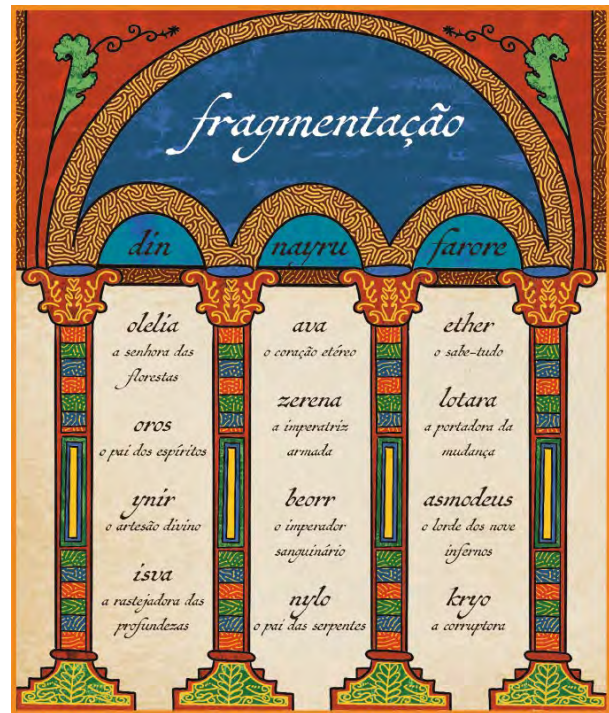 fragmentação
din
nayru
farore
olelia
a senhora das
florestas
oros
o pai dos espíritos
ynir
o artesão divino
isva
a rastejadora das
profundezas
ava
o coração etéreo
zerena
a imperatriz
armada
beorr
o imperador
sanguinário
nylo
o pai das serpentes
ether
o sabe-tudo
lotara
a portadora da
mudança
asmodeus
o lorde dos nove
infernos
kryo
a corruptora